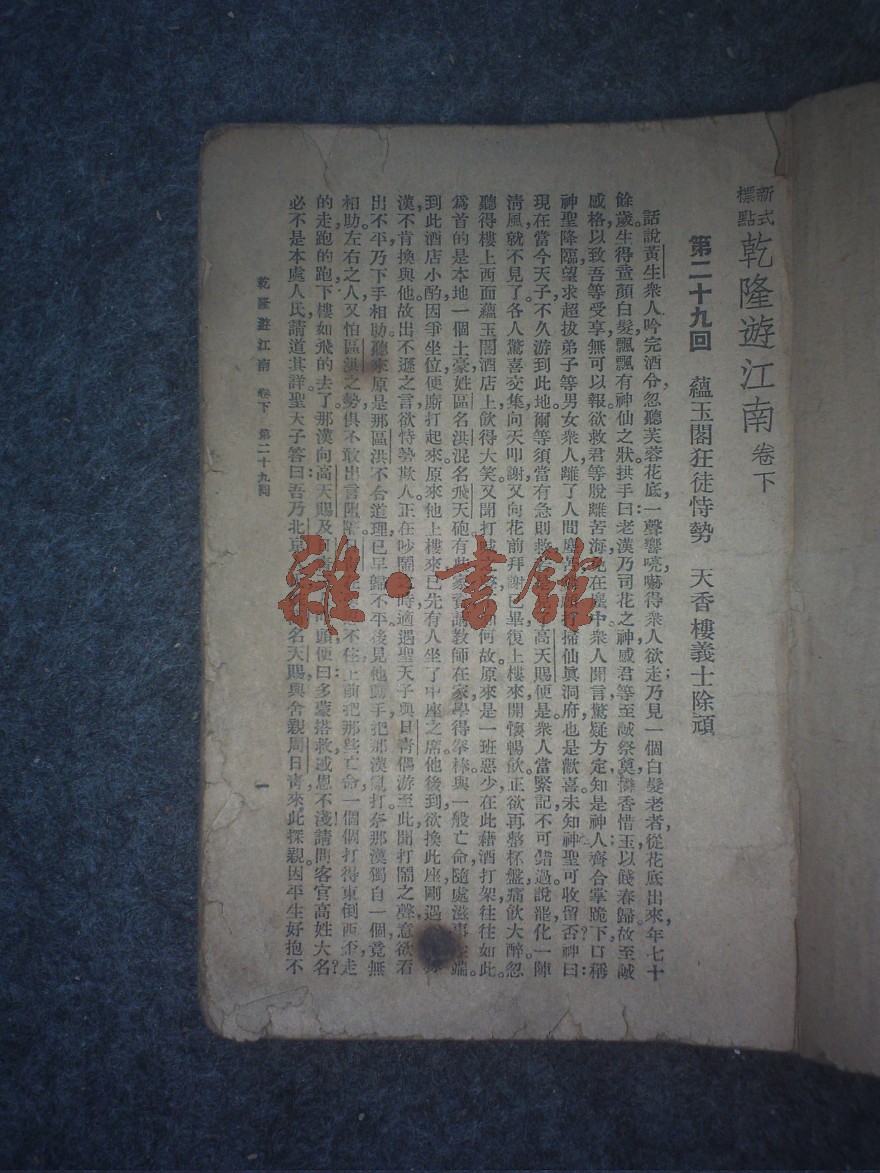 新式標點 乾隆遊江南 卷下
第二十九回 蘊玉閣狂徒恃勢 天香樓義士除頑
話說黃生衆人吟完酒令，忽聽芙蓉花底，一聲響喨，嚇得衆人欲走，乃見一個白髮老者，從花底出來，年七十
餘歲，生得童顏白髮飄飄有神仙之狀，拱手曰：老漢乃司花之神，感君等至誠祭奠，憐香惜玉，以餞春歸，故至誠
感格，以致吾等受享，無可以報，欲救君等脫離苦海，免在塵中，衆人聞言驚疑，方定知是神人，齊合掌跪下，口稱
神聖降臨，望求超拔弟子等男女衆人離了人間塵 打掃仙眞洞府也是歡喜，未知神聖可收留否？神曰：
現在當今天子，不久游到此地，爾等須當有急則救 高天賜便是，衆人當緊記，不可錯過，說罷化一陣
淸風就不見了。各人驚喜交集，向天叩謝，又向花前拜謝已畢，復上樓來，開懷暢飲，正欲再整杯盤，痛飲大醉。忽
聽得樓上西面蘊玉閣酒店上，飲得大笑，又聞打 何故。原來是一班惡少在此藉酒打架，往往如此。
爲首的是本地一個土豪，姓區名洪，混名飛天砲，有 家 請教師在家學得拳棒，與一般亡命隨處滋事 端。
到此酒店小酌，因爭坐位，便廝打起來。原來他上樓來，已先有人坐了中座之席，他後到欲換此座，剛遇
漢不肯換與他，故出不遜之言，欲恃勢欺人，正在吵鬧 時，適遇聖天子與日青偶游至此，聞打鬧之聲，意欲看
出不平，乃下手相助，聽來原是那區洪不合道理，已早歸不平，後見他 手把那漢亂打，奈那漢獨自一個，竟無
相助，左右之人，又怕區洪之勢，俱不敢出言 不住上前，把那些亡命一個個打得東倒西歪，走
的走，跑的跑，下樓如飛的去了，那漢向高天賜及 叩頭，便曰：多蒙搭救，感恩不淺，請問客官高姓大名？
必不是本處人民，請道其詳。聖天子答曰：吾乃北京 名天賜，與舍親周日青，來此探親，因平生好抱不
乾隆遊江南 卷下 第二十九回 一
雜·書館